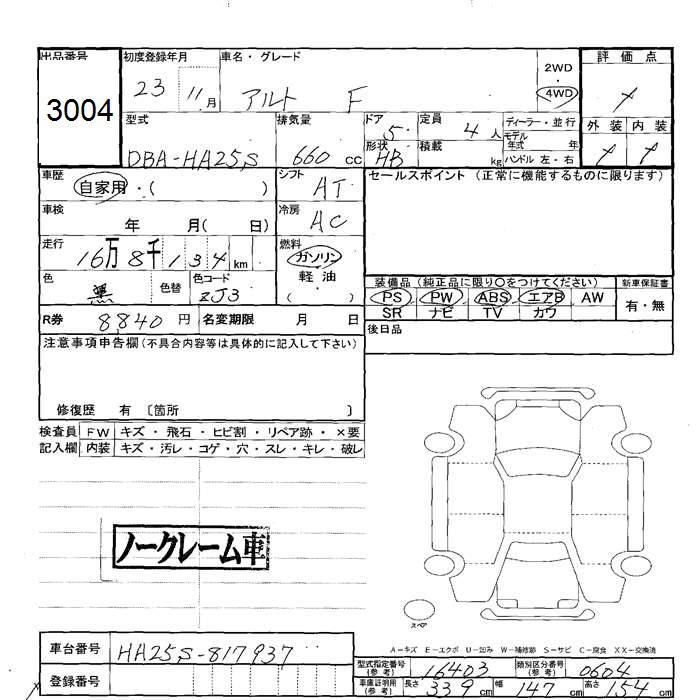 出品番号 初度登録年月 車名・グレード 評価点
3004 23 11月 アルト F 2WD 4WD
外装 内装
型式 排気量 ドア 定員 ディーラー・並行
DBA-HA25S 660cc 5 4人 モデル年式 年
形状 HB 積載 kg ハンドル 左・右
車歴 シフト セールスポイント (正常に機能するものに限ります)
自家用・( ) AT
車検 冷房
年 月( 日) AC
走行 燃料
16万8千134km ガソリン
軽・油
( )
色 色替 色コード
黒 ZJ3
装備品 (純正品に限り○をつけてください) 新車保証書
PS PW ABS エアB AW 有・無
SR ナビ TV カワ
R券 8,840円 名変期限 月 日
後日品
注意事項申告欄(不具合内容等は具体的に記入して下さい)
修復歴 有 〔箇所 〕
検査員 FW キズ・飛石・ヒビ割・リペア跡・×要
記入欄 内装 キズ・汚レ・コゲ・穴・スレ・キレ・破レ
ノークレーム車
スペア
A-キズ E-エクボ U-凹み W-補修跡 S-サビ C-腐食 XX-交換済
車台番号 HA25S-817937
登録番号
型式指定番号(参考) 16403 類別区分番号(参考) 0604
車庫証明用(参考) 長さ 339cm 幅 147cm 高さ 154cm